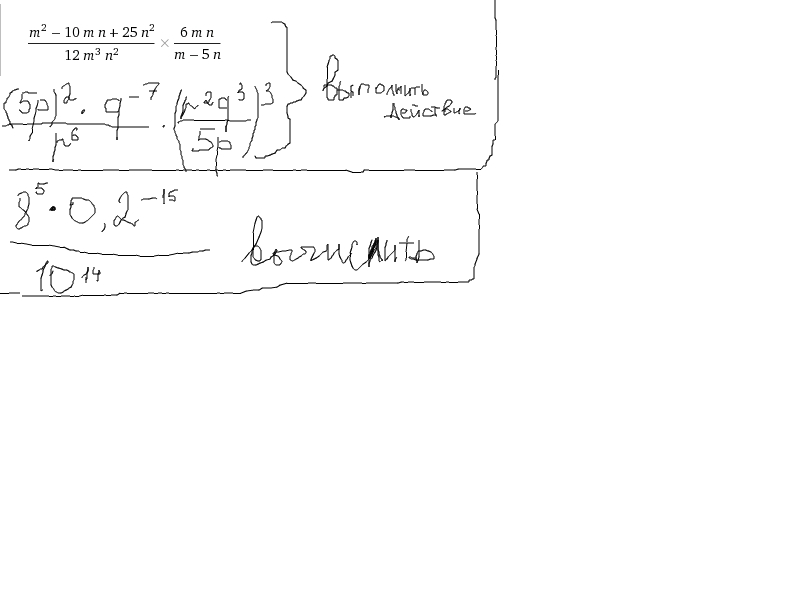 m² − 10 m n + 25 n² / 12 m³ n² × 6 m n / m − 5 n
(5p)² · q⁻⁷ / p⁶ · (p²q³ / 5p)³
выполнить
действие
8⁵ · 0,2⁻¹⁵ / 10¹⁴
вычислить